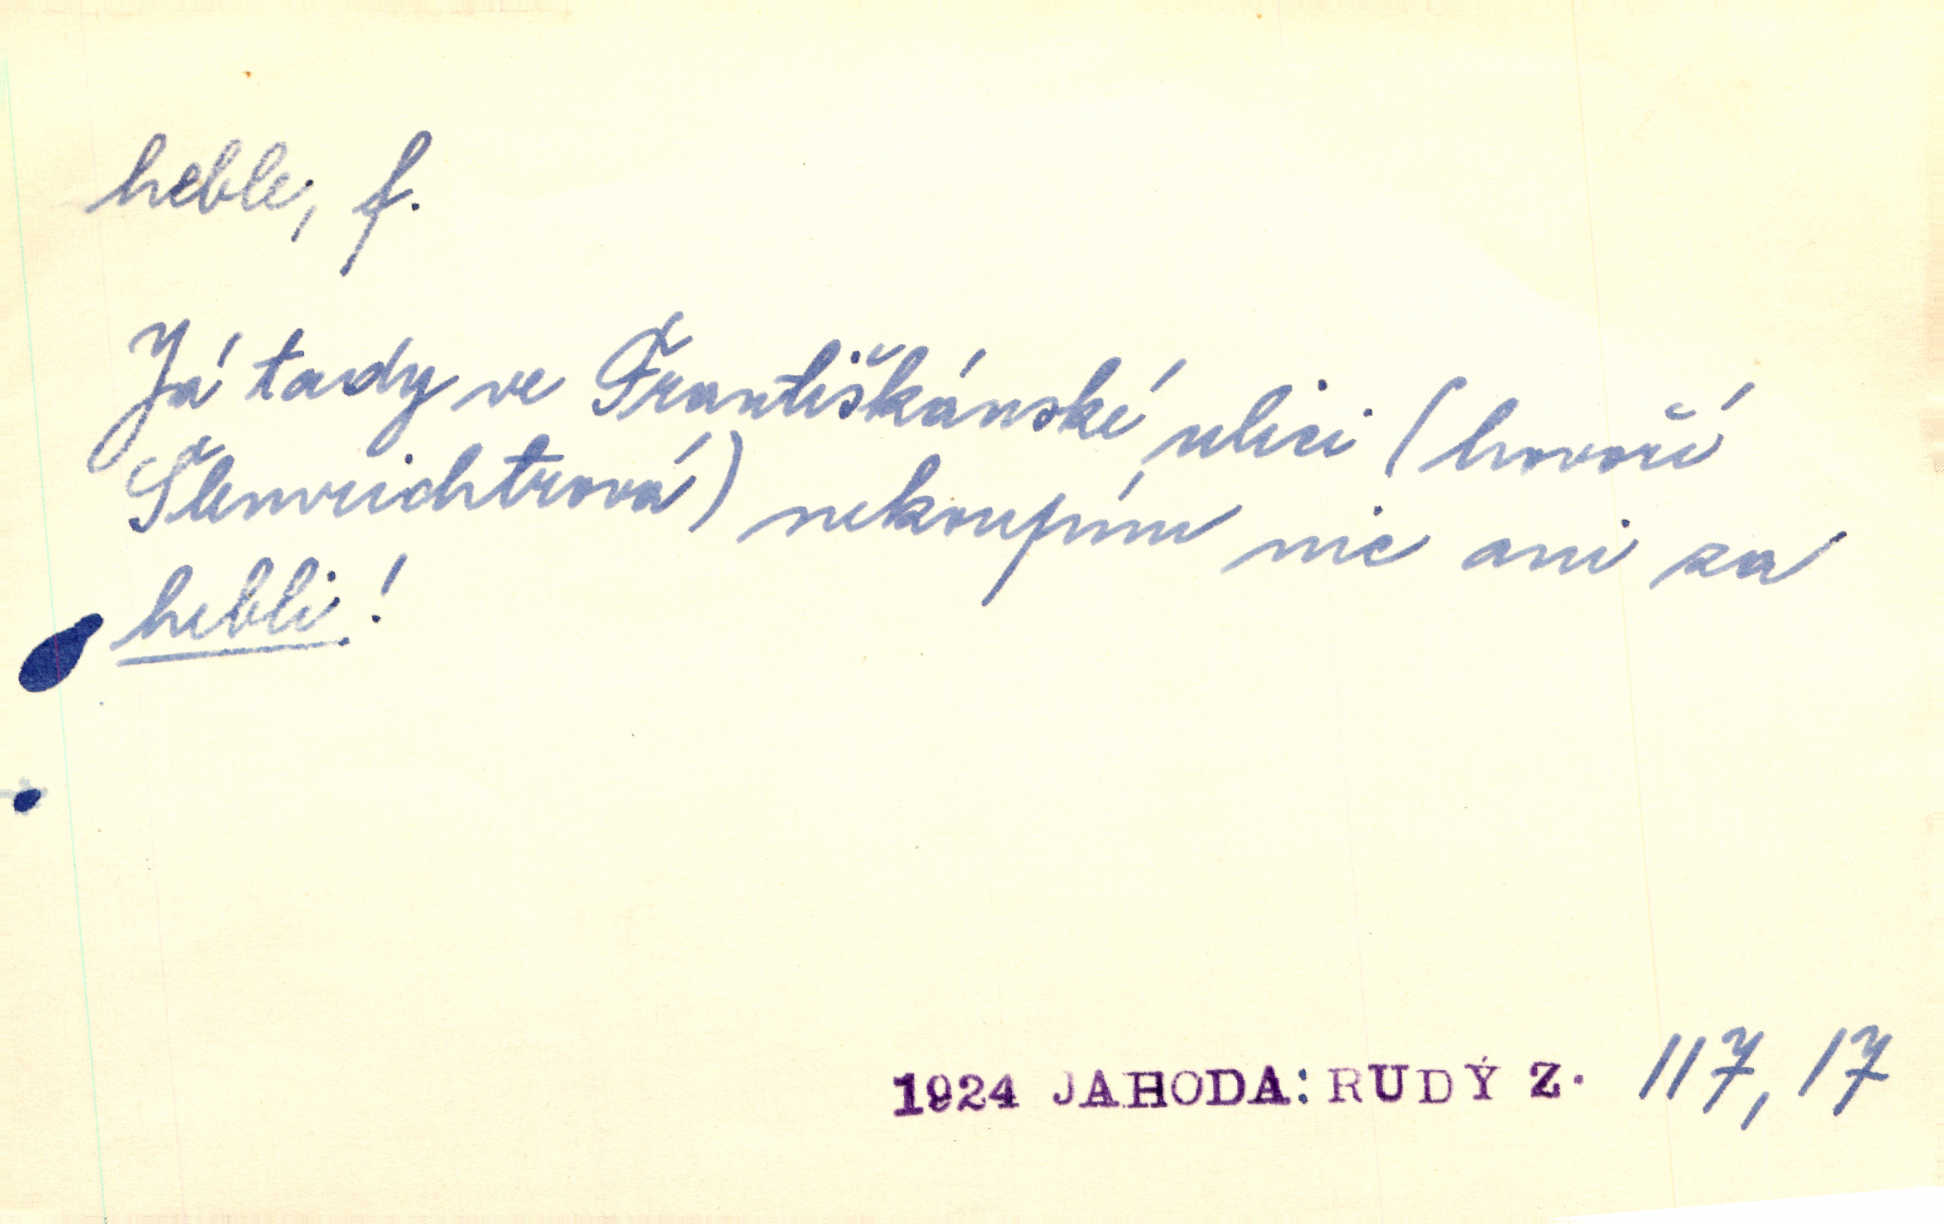 heble, f.
Já tady ve Františkánské ulici (hovoří
Šlemrichtrová) nekoupím nic ani za
hebli!
1924 JAHODA: RUDÝ Z. 117, 17